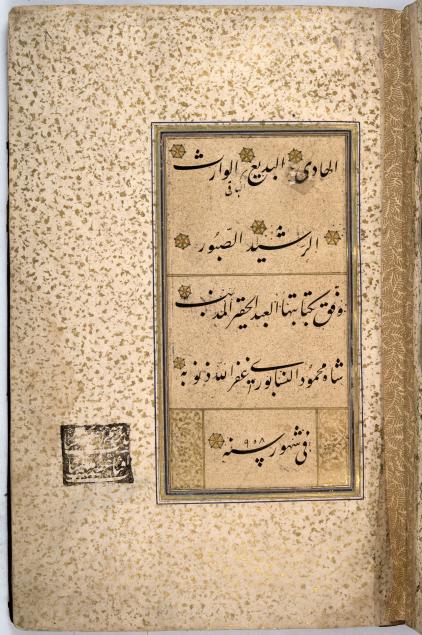 الهادی البدیع الباقی الوارث
الرشید الصبور
وفق بکتابتها العبد الحقیر المذنب
شاه محمود النیسابوری غفر الله ذنوبه
فی شهور سنه ۹۰۸